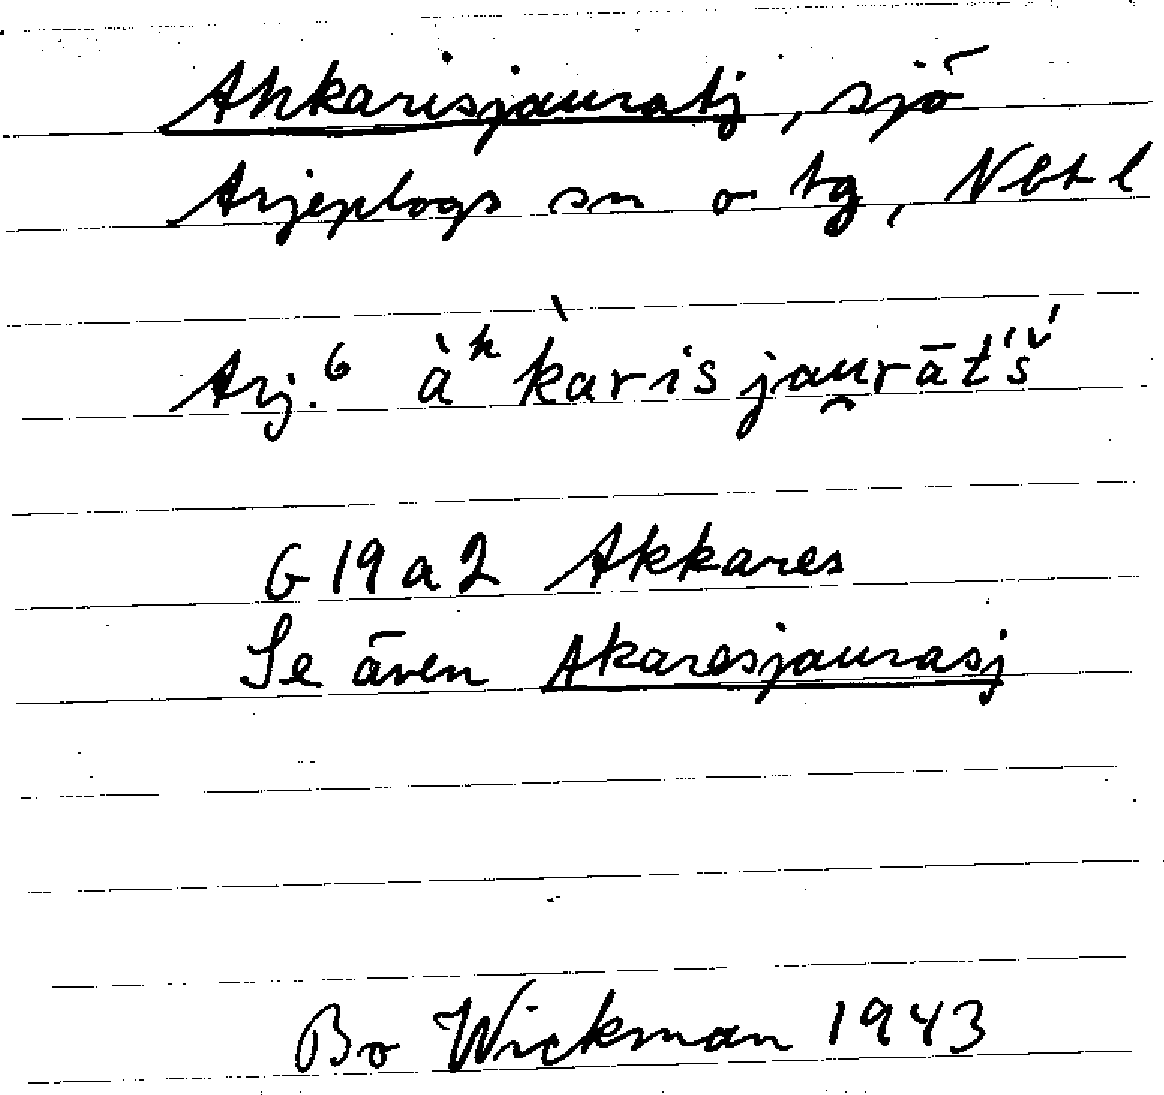 Ahkarisjauratj, sjö
Arjeplogs sn o tg, Nbt l
Arj.⁶ àʰk̀arisjau̯rāt́š́
G 19 a 2 Akkares
Se även Akaresjaurasj
Bo Wickman 1943